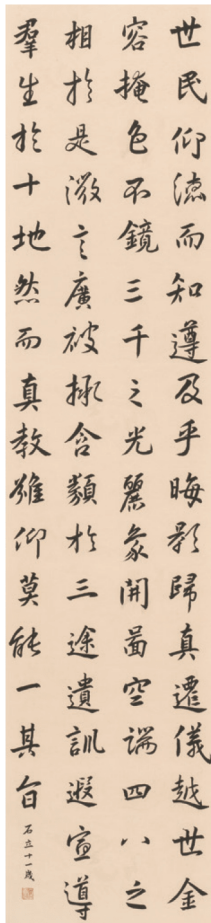 世民仰德而知遵及乎晦影歸真遷儀越世金
容掩色不鏡三千之光麗象開圖空端四八之
相於是微言廣被拯含類於三途遺訓遐宣導
羣生於十地然而真教難仰莫能一其旨
石立十一歲